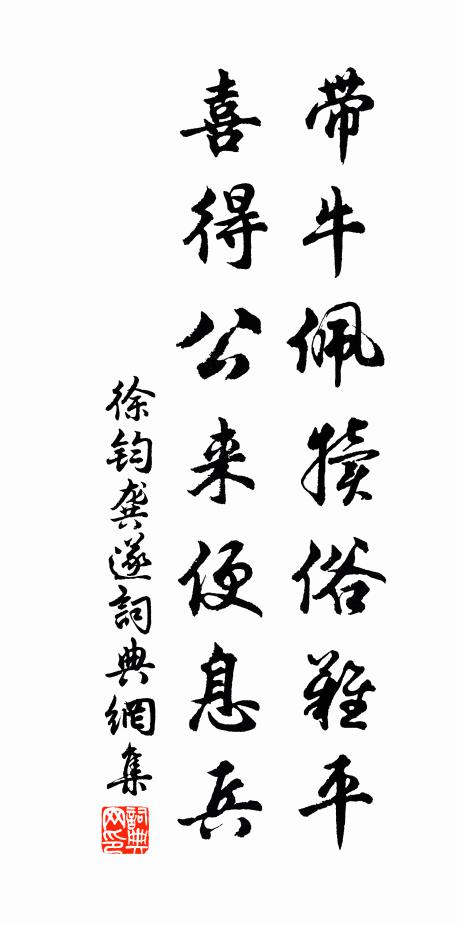 带牛佩犊俗难平
喜得公来便息兵
徐钧龚遂詞典網集
詞典网印